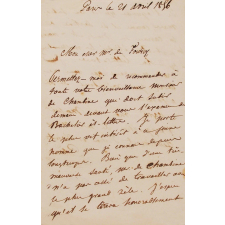 Paris le 21 avril 1856
Mon cher Mr de
Permettez-moi de recommander à
toute votre bienveillance monsieur
de Chambine qui doit subir
demain devant vous l'examen du
Bachelier ès lettres. Je porte
le plus vif intérêt à ce jeune
homme que je connais depuis
longtemps. Bien que d'une très
mauvaise santé, Mr de Chambine
n'a pas cessé de travailler avec
le plus grand zèle. J'espère
qu'il se tirera honorablement